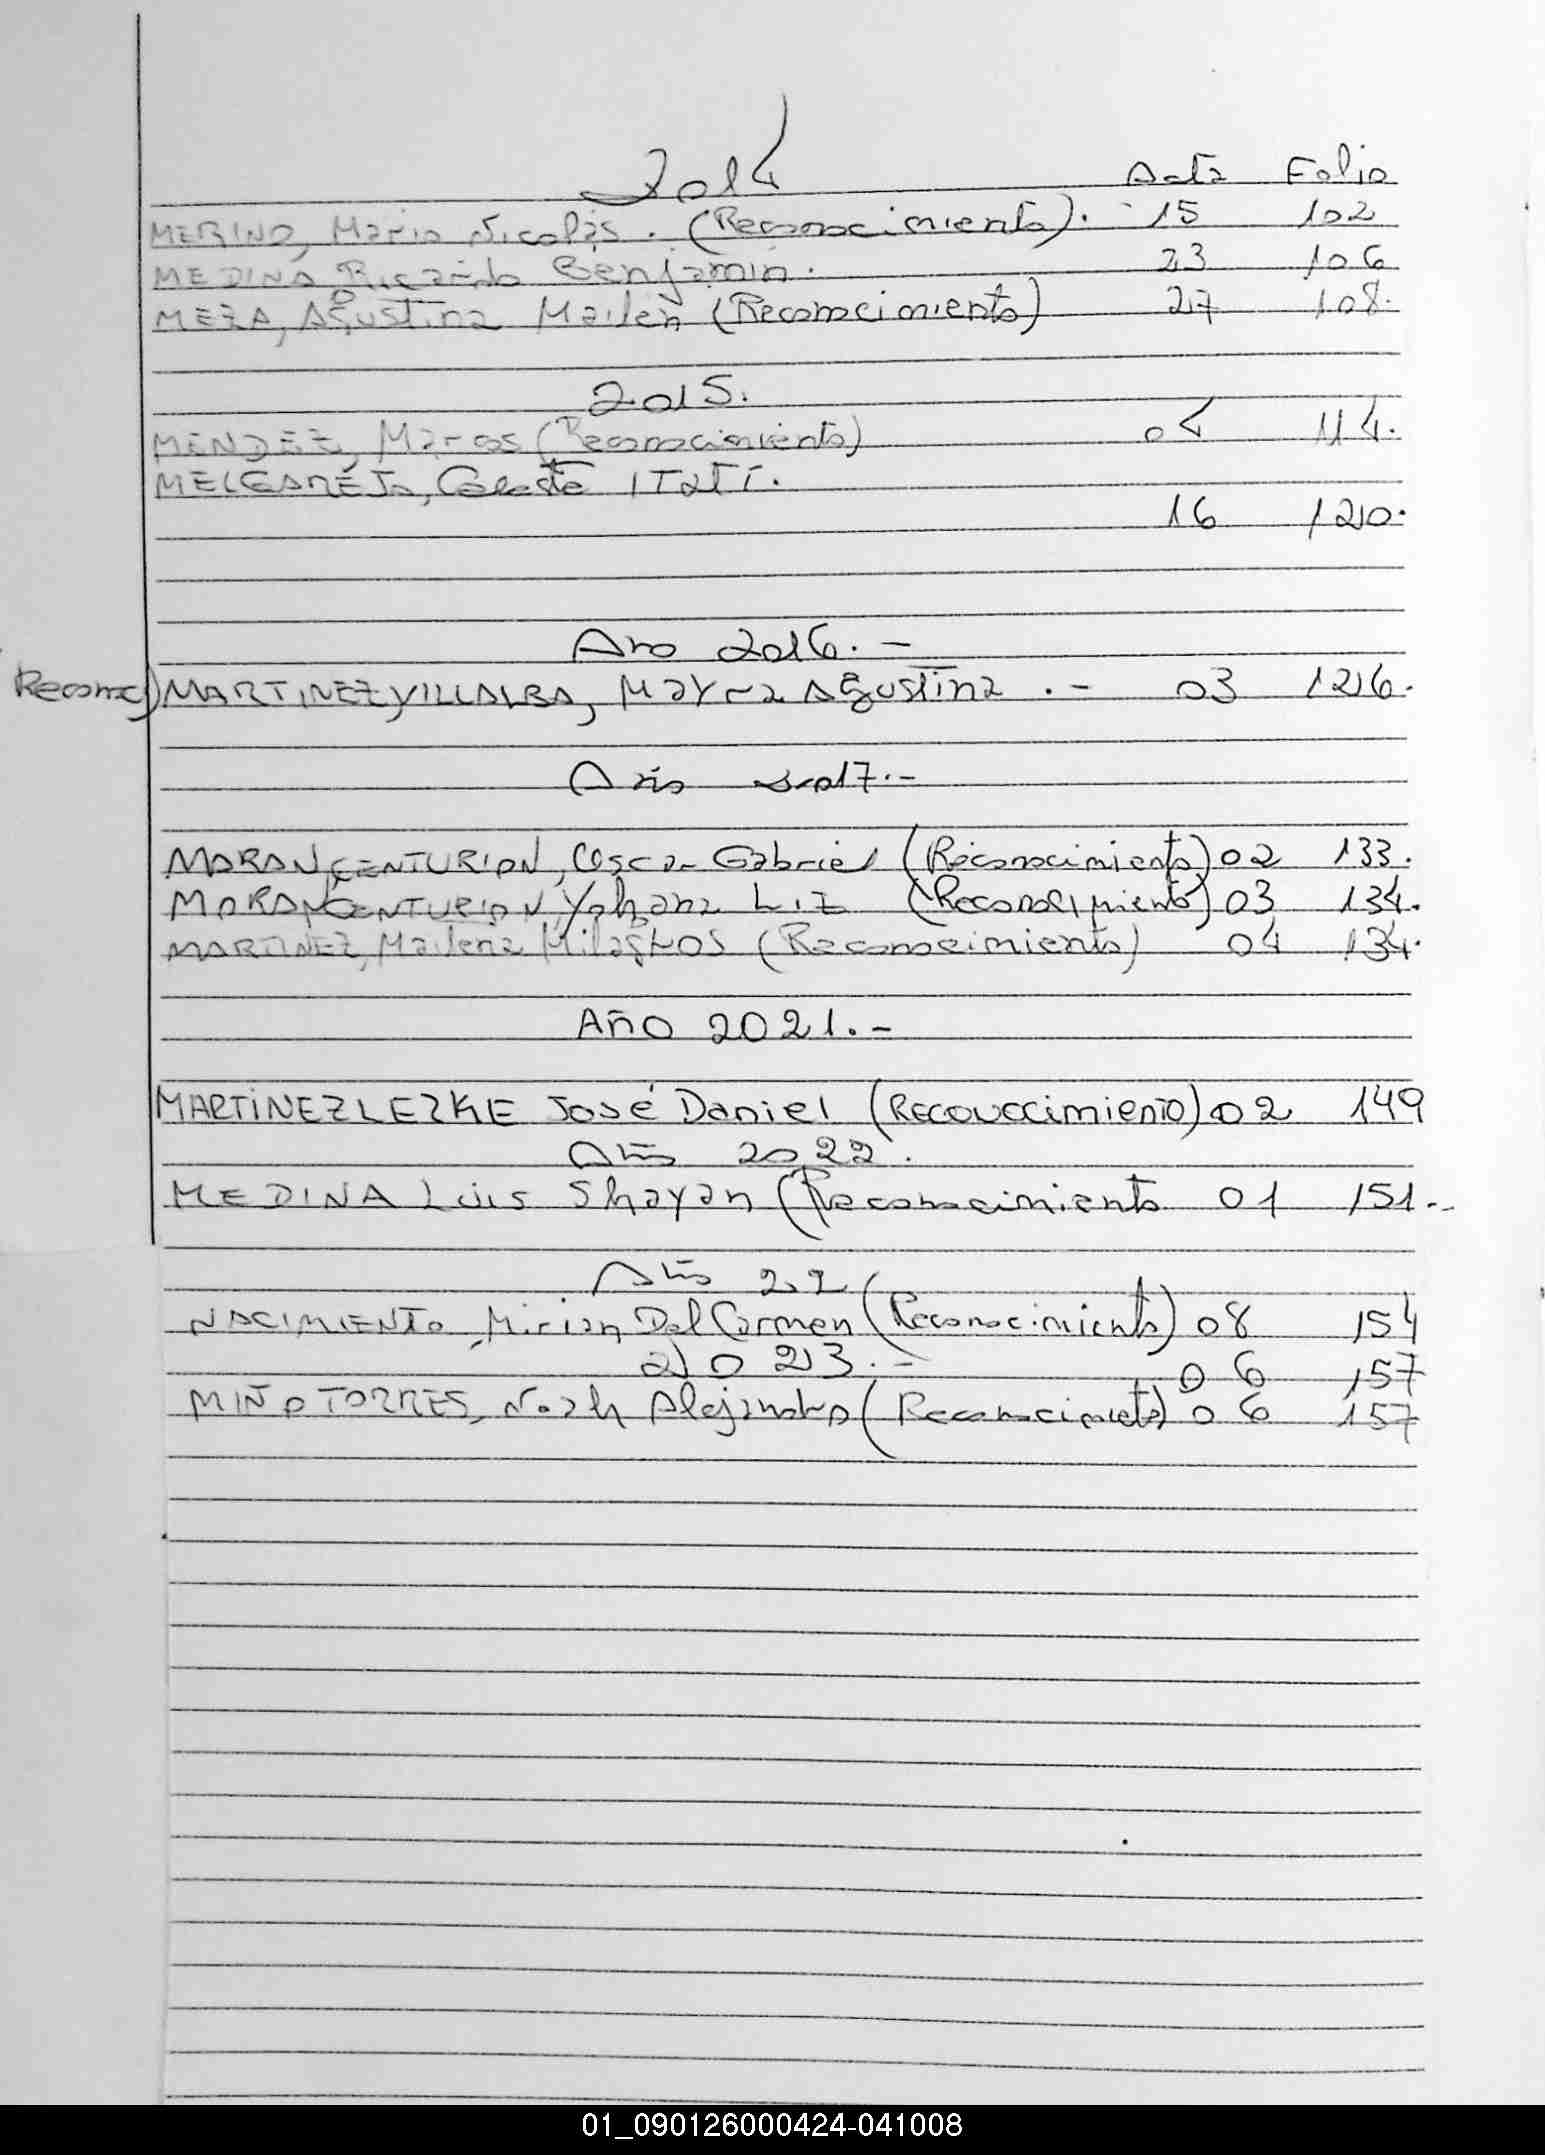 2014 Acta Folio
MERINO, Mario Nicolás. (Reconocimiento). 15 102
MEDINA Ricardo Benjamin. 23 106
MEZA, Agustina Mailen (Reconocimiento) 27 108.
2015.
MENDEZ, Marcos (Reconocimiento) 04 114.
MELGAREJO, Celeste ITATI.
16 120.
Año 2016.-
Reconoc) MARTINEZ VILLALBA, Mayra Agustina .- 03 126.
Año 2017.-
MORAN CENTURION, Oscar Gabriel (Reconocimiento) 02 133.
MORAN CENTURION, Yohana Liz (Reconocimiento) 03 134.
MARTINEZ, Mailena Milagros (Reconocimiento) 04 134.
Año 2021.-
MARTINEZ LEZKE José Daniel (Reconoccimiento) 02 149
Año 2022.
MEDINA Luis Shayan (Reconocimiento 01 151.-
Año 22
NACIMIENTO, Mirian Del Carmen (Reconocimiento) 08 154
2023.- 06 157
MIÑO TORRES, Noah Alejandro (Reconocimieto) 06 157
01_090126000424-041008